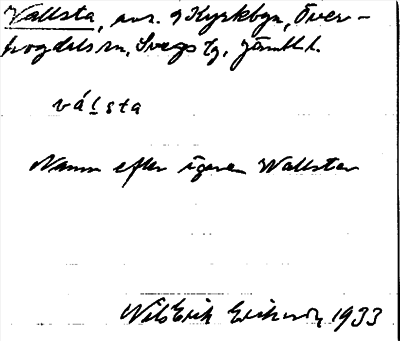 Vallsta, avs. g Kyrkbyn, Över-
hogdals sn, Svegs tg, Jämtl. l.
vál̲sta
Namn efter ägaren Wallsten
Nils Erik Erikson, 1933